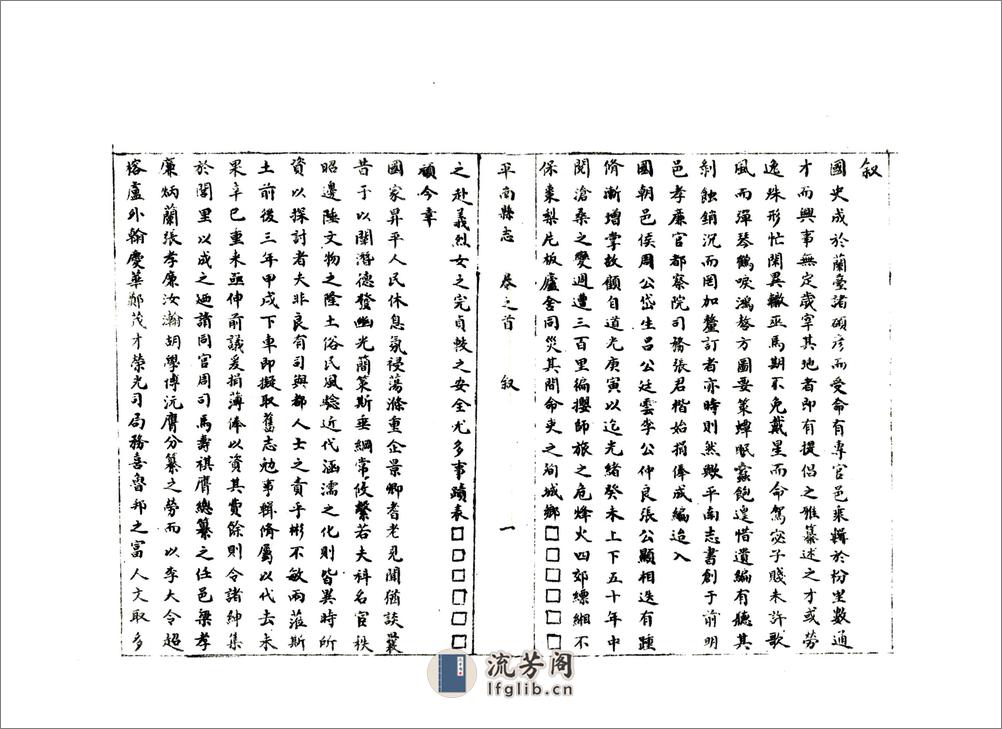 叙
國史成於蘭臺諸碩彥而受命有專官邑乘輯於枌里數通
才而興事無定歲宰其地者即有提倡之雅纂述之才或勞
逸殊形忙閑異轍巫馬期不免戴星而命駕宓子賤未許歌
風而彈琴鶴唳鴻嗸方圖妥策蟫眠蠹飽遑惜遺編有聽其
剝蝕銷沉而罔加釐訂者亦時則然歟平南志書創于前明
邑孝廉官都察院司務張君楷始捐俸成編迨入
國朝邑侯周公岱生呂公廷雲李公仲良張公顯相迭有踵
脩漸增掌故顧自道光庚寅以迄光緒癸未上下五十年中
閱滄桑之變週遭三百里編攖師旅之危烽火四郊縹緗不
保棗梨片板廬舍同災其間命吏之殉城鄉□□□□□□
平南縣志 卷之首 叙 一
之赴義烈女之完貞帙之安全尤多事蹟表□□□□□□
頑今幸
國家昇平人民休息氛祲蕩滌重企景卿耆老見聞猶談曩
昔于以闡潛德發幽光簡策斯垂綱常攸繫若夫科名官秩
昭邊陲文物之隆土俗民風驗近代涵濡之化則皆異時所
資以探討者夫非良有司與都人士之責乎彬不敏兩蒞斯
土前後三年甲戌下車即擬取舊志勉事輯脩屬以代去未
果辛巳重来亟伸前議爰捐薄俸以資其費餘則令諸紳集
於閭里以成之迺請同官周司馬壽祺膺總纂之任邑梁孝
廉炳蘭張孝廉汝瀚胡學博沅膺分纂之勞而以李大令超
榕盧外翰慶華鄭茂才榮光司局務喜魯邦之富人文取多
流芳阁
lfglib.cn